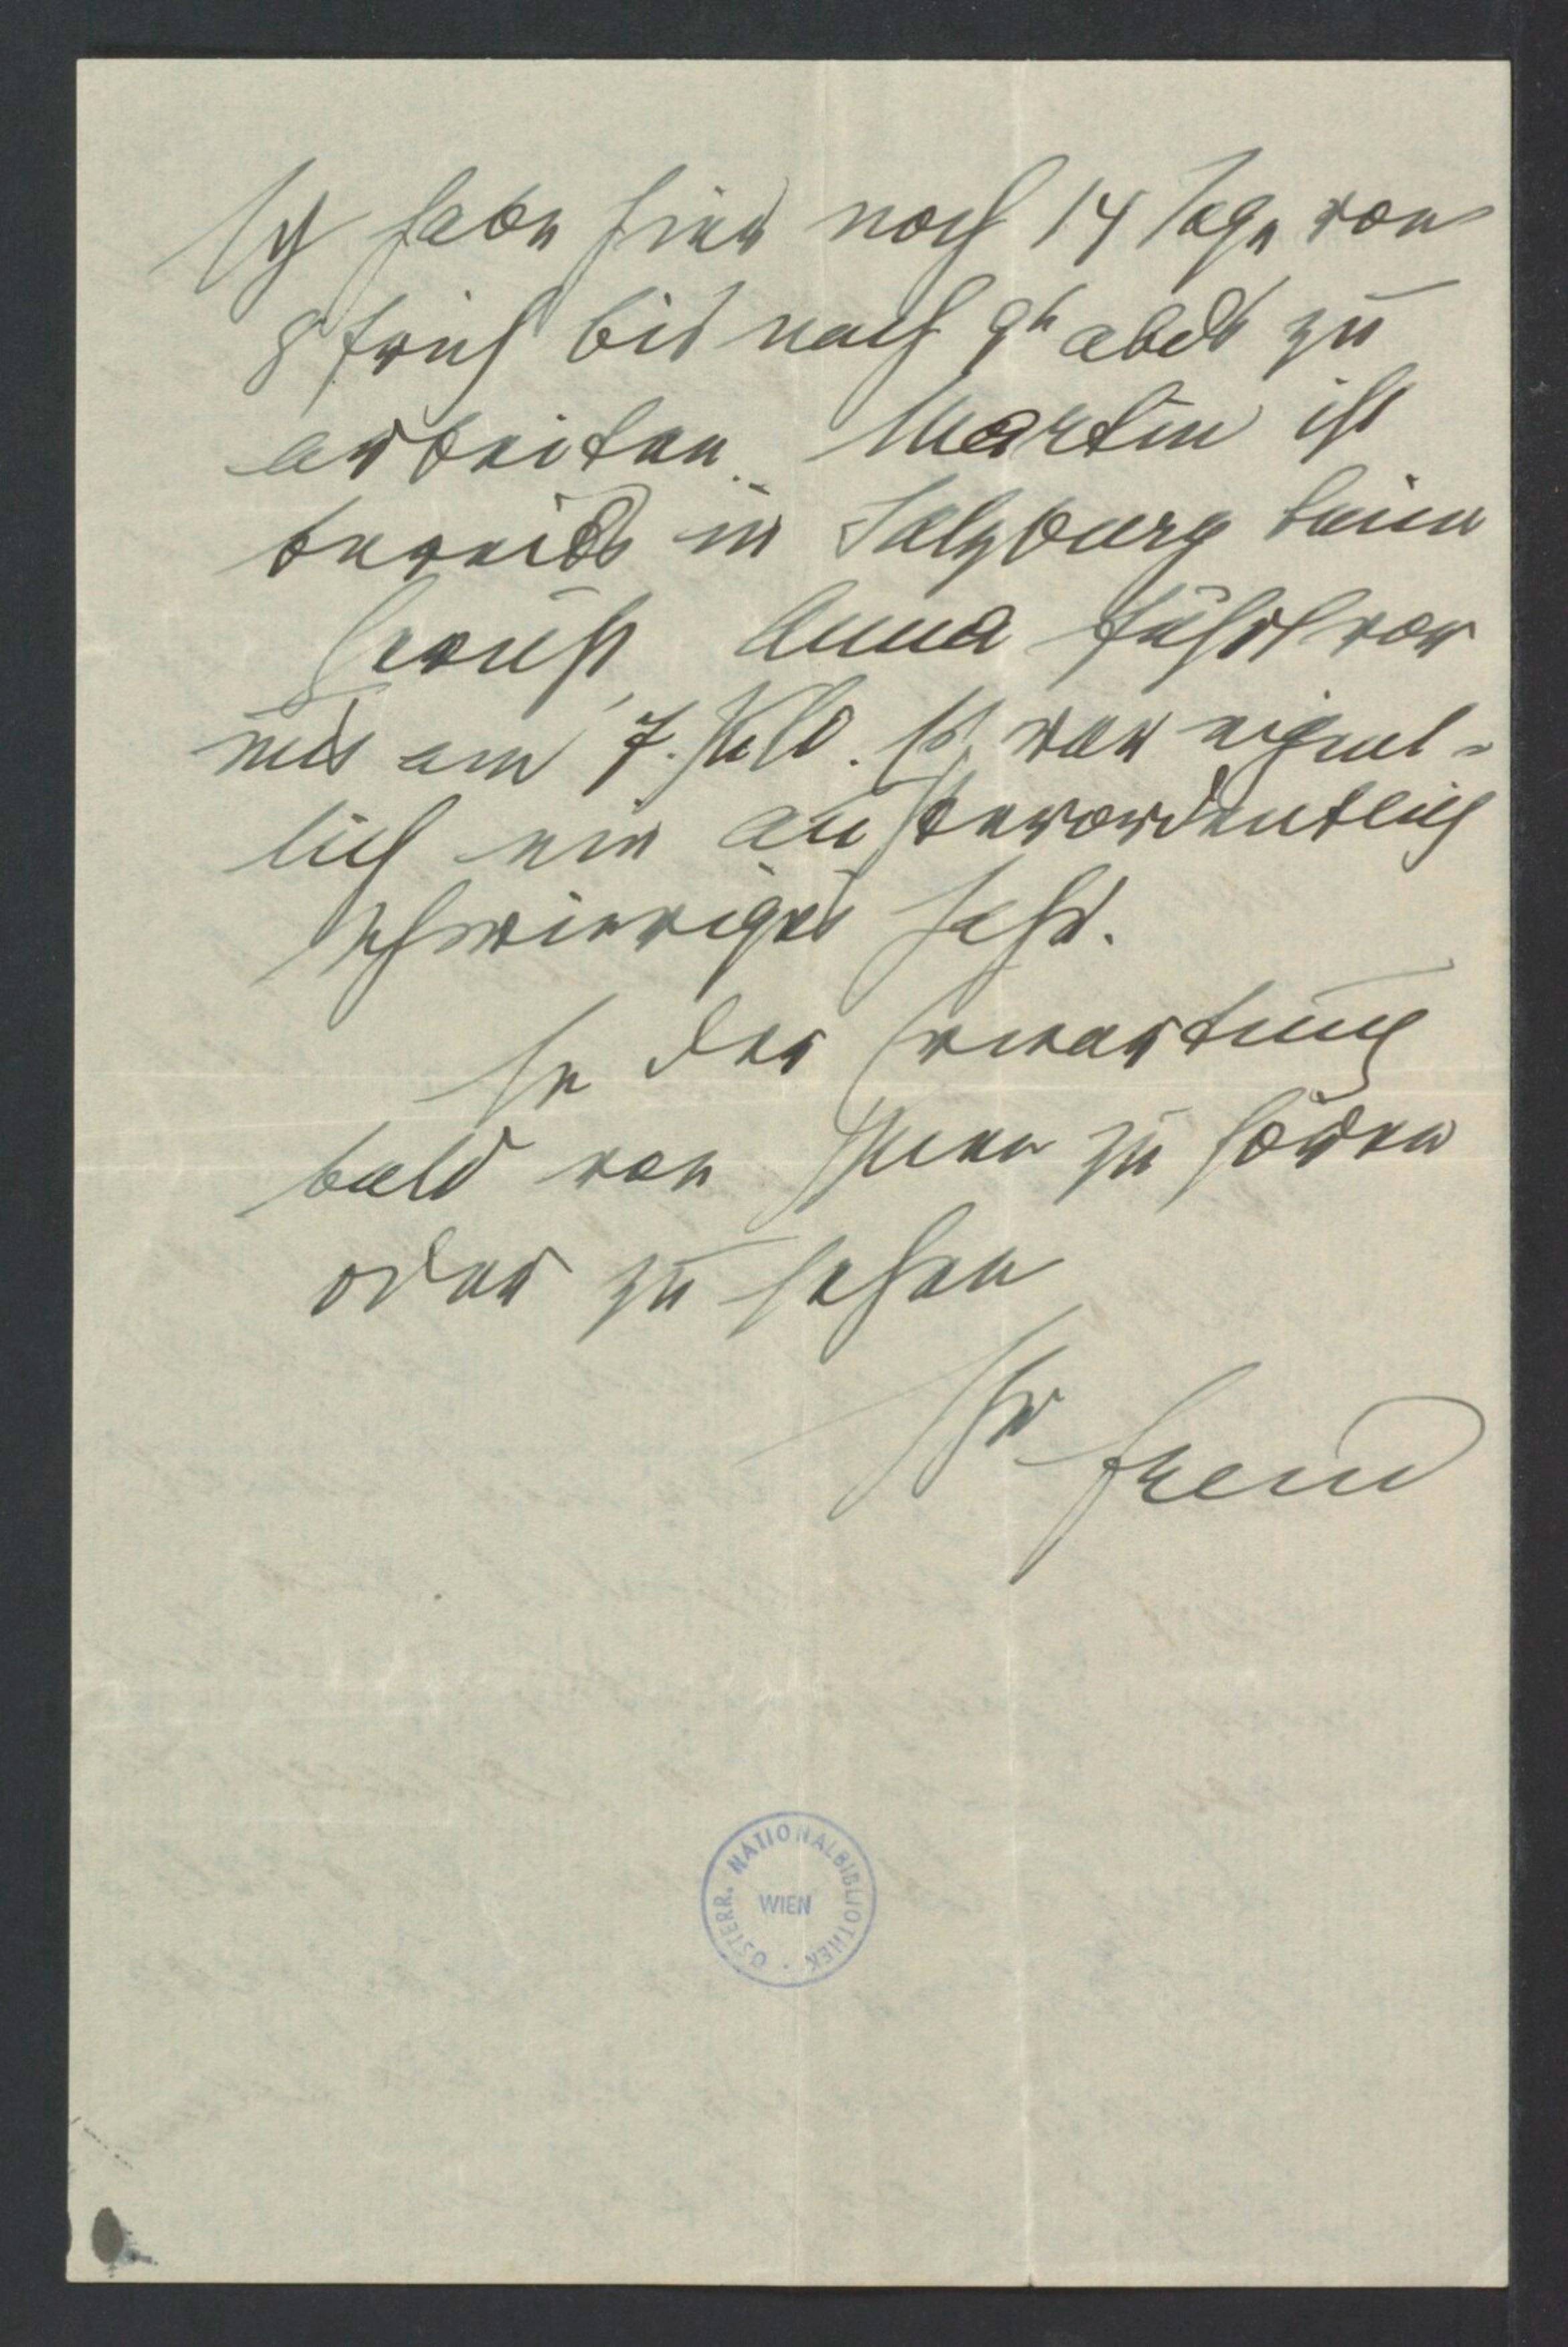 Ich habe hier noch 14 Tage von
8 früh bis nach 9h abds zu
arbeiten. Martin ist
bereits in Salzburg beim
Gericht, Anna fährt von
uns am 7. Juli. Es war eigent-
lich ein außerordentlich
schwieriges Jahr.
In der Erwartung
bald von Ihnen zu hören
oder zu sehen
Ihr Freud
ÖSTERR. NATIONALBIBLIOTHEK · WIEN